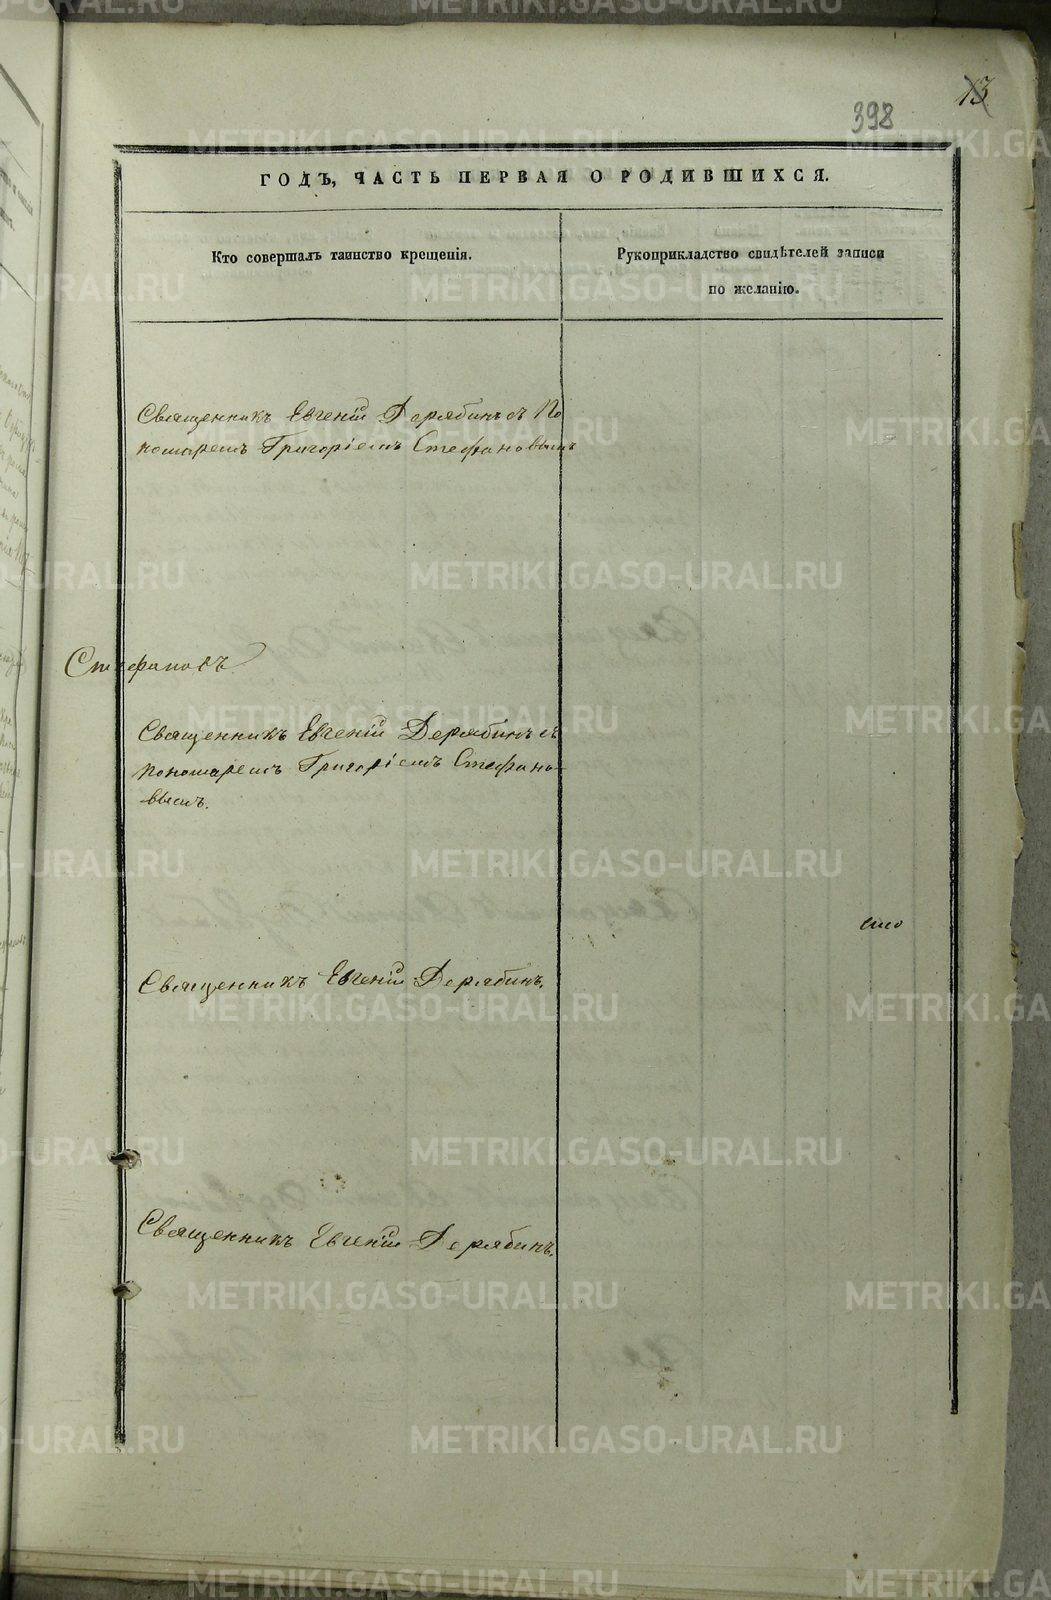 13
398
ГОДЪ, ЧАСТЬ ПЕРВАЯ О РОДИВШИХСЯ.
Кто совершалъ таинство крещенія.
Рукоприкладство свидѣтелей записи
по желанію.
Священникъ Евгеній Дерябинъ съ По
номаремъ Григоріемъ Стефановымъ
Стефановъ
Священникъ Евгеній Дерябинъ съ
пономаремъ Григоріемъ Стефано-
вымъ.
Священникъ Евгеній Дерябинъ.
Священникъ Евгеній Дерябинъ.
METRIKI.GASO-URAL.RU